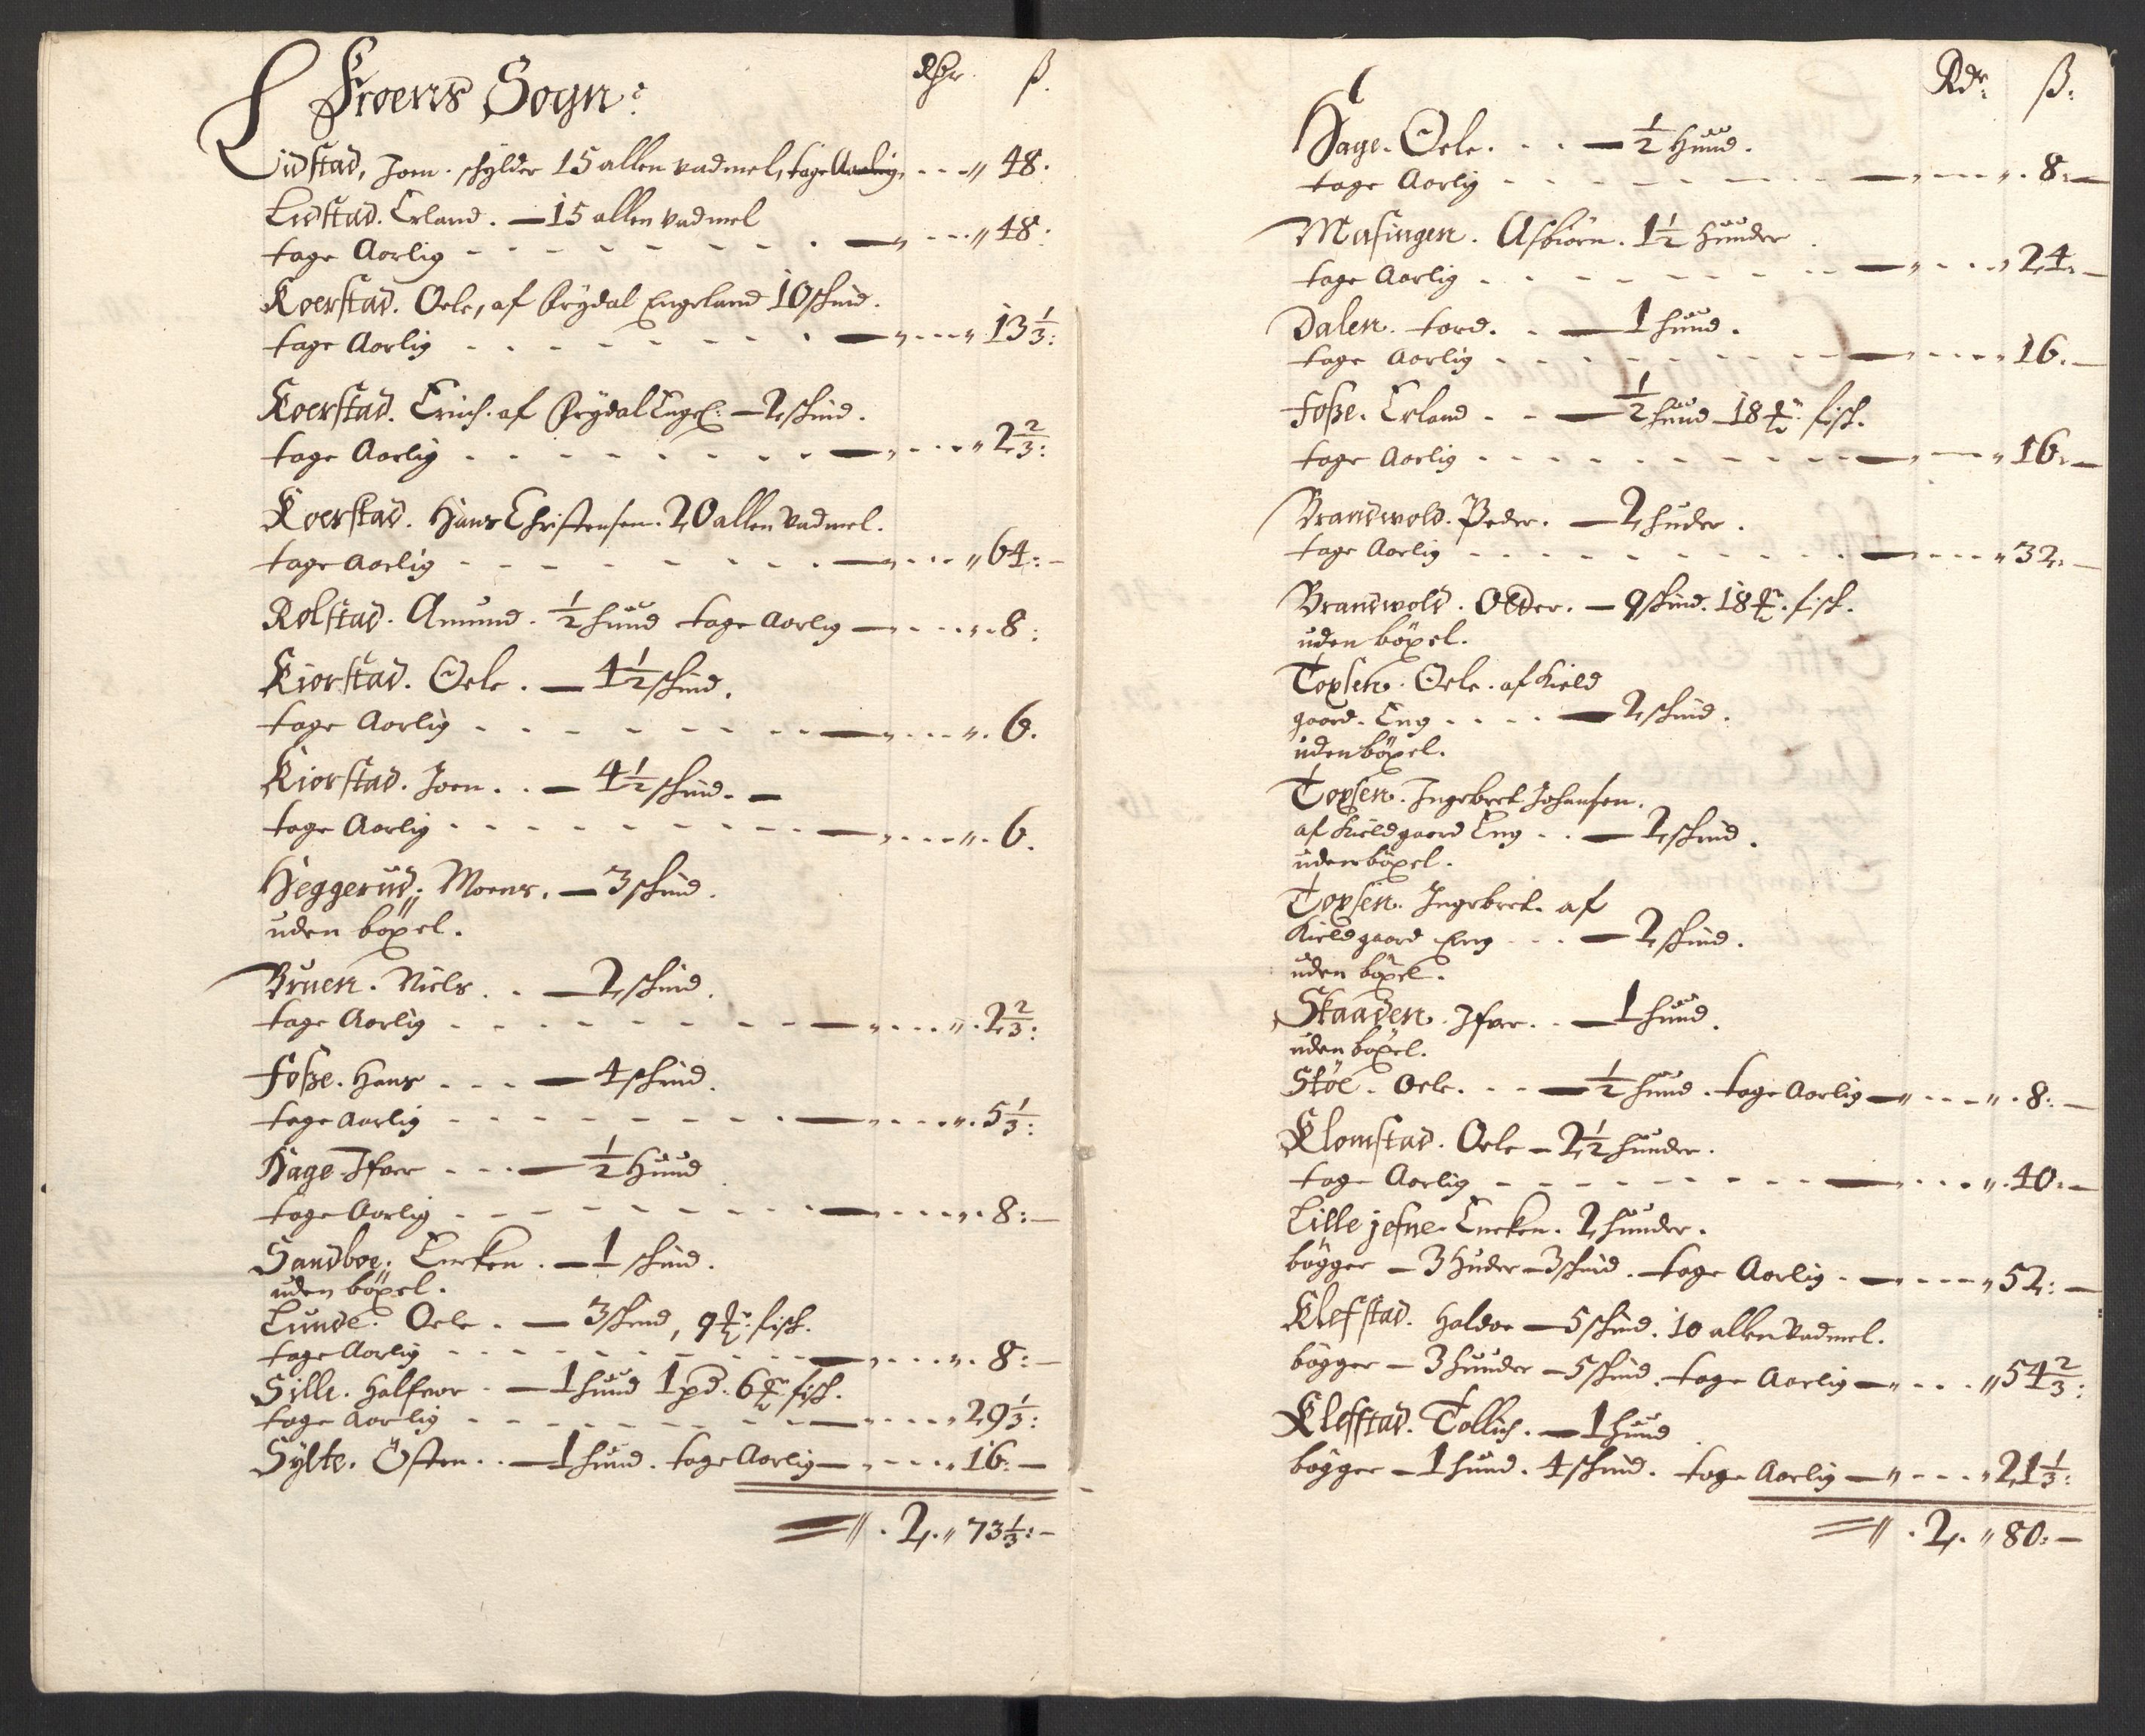 Froens Sogn: Rdr. ß.
Lidstad, Joen. schylder 15 allen vadmel, tage Aarlig, - - - „ 48.
Lidstad. Erland. — 15 allen vadmel
tage Aarlig - - - - - - - - — „ - - - „ 48:
Koerstad. Oele, af Frydal Engeland 10 skind.
tage Aarlig - - - - - - - - — „ - - - „ 13 1/3:
Koerstad. Erich. af Frydal Engel: — 2 skind.
tage Aarlig - - - - - - - - — „ - - - „ 2 2/3:
Koerstad. Hans Christensen. 20 allen vadmel.
tage Aarlig - - - - - - - - — „ - - - „ 64: —
Rolstad. Amund. 1/2 huud tage Aarlig — - - - „. 8:
Kiorstad. Oele. — 4 1/2 skind.
tage Aarlig - - - - - - - - — „ - - - „. 6.
Kiorstad. Joen. . — 4 1/2 skind. —
tage Aarlig - - - - - - - - — „ - - - „. 6.
Heggerud; Moens. — 3 skind.
uden böxel.
Bruen. Niels. . — 2 skind.
tage Aarlig - - - - - - - - — „ - - - „. 2 2/3:
Foße. Hans . - - — 4 skind.
tage Aarlig - - - - - - - - — „ - - - „. 5 1/3:
Hage Ifver - - - — 1/2 Huud
tage Aarlig - - - - - - - - — „ - - - „. 8: —
Sandboe. Kircken. — 1 skind.
uden böxel.
Lunde. Oele. — 3 skind, 9 ℔. fisk.
tage Aarlig - - - - - - - - — „ - - - „. 8: —
Sille. Halfvor - — 1 huud 1 pd. 6 ℔ fisk.
tage Aarlig - - - - - - - - — - - - „ 29 1/3:
Sylte. Östen. . — 1 huud. tage Aarlig — „ - - - „ 16: —
„. 2. „ 73 1/3: —
Rdr. ß:
Hage. Oele. . . — 1/2 Huud.
tage Aarlig - - - - - - - - — „ - - - „. 8: —
Musingen. Asbiörn. 1 1/2 huuder.
tage Aarlig - - - - - - - - — „ - - - „ 24: —
Dalen. tord. . — 1 huud.
tage Aarlig - - - - - - - - — „ - - - „ 16. —
Foße. Erland - - — 1/2 huud — 18 ℔. fisk.
tage Aarlig - - - - - - - - — „ - - - „ 16. —
Brandvold. Peder. — 2 huder.
tage Aarlig - - - - - - - - — „ - - - „ 32: —
Brandvold. Otter. — 9 skind. 18 ℔. fisk.
uden böxel.
Toxsen. Oele. af Kield
gaard. Eng . . . . — 2 skind.
uden böxel.
Toxsen. Ingebret Johansen.
af Kieldgaard Eng . . — 2 skind.
uden böxel.
Toxsen. Ingebret. af
Kieldgaard Eng - . . — 2 skind.
uden böxel.
Skaaden. Ifver. . — 1 huud.
uden böxel.
Stöe. Oele. - - — 1/2 huud. tage Aarlig — „ - - - „. 8: —
Klomstad. Oele — 2 1/2 huuder.
tage Aarlig - - - - - - - - — - - - „. 40: —
Lille jefne. Kircken. 2 huuder.
bögger — 3 Huder — 3 skind. tage Aarlig. — - - - „ 52: —
Klefstad. Haldor — 5 skind. 10 allen Vadmel.
bögger — 3 huuder — 5 skind. tage Aarlig — „ - - - „ 54 2/3:
Klefstad. Tollich. — 1 Huud.
bögger — 1 huud. 4 skind. tage Aarlig — „ - - - „ 21 1/3:
„. 2. „ 80: —